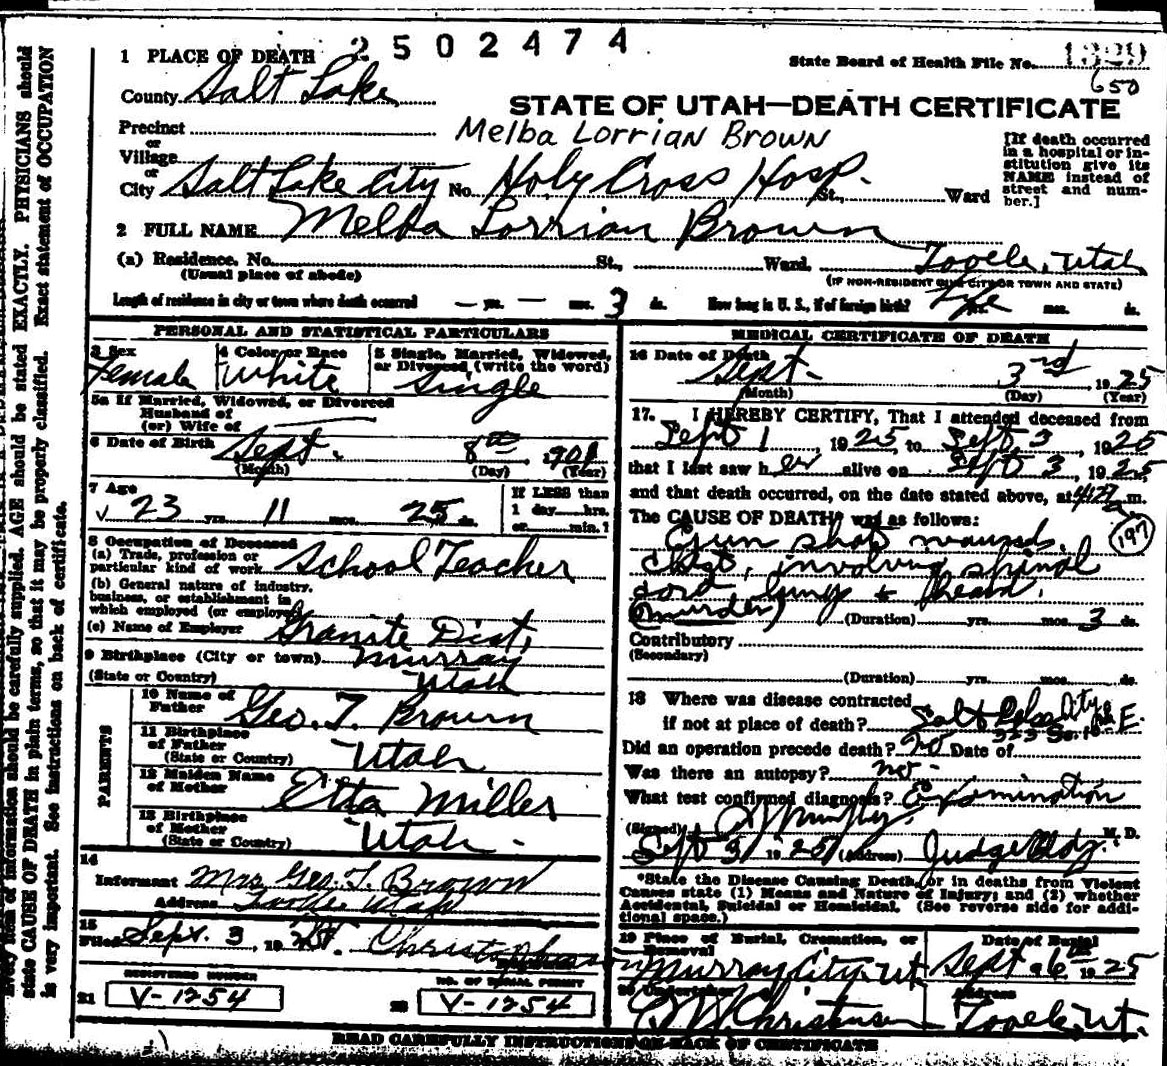 2502474
State Board of Health File No. 1329
650
1 PLACE OF DEATH
County Salt Lake
STATE OF UTAH—DEATH CERTIFICATE
Precinct
Melba Lorrian Brown
or
Village
or
City Salt Lake City No. Holy Cross Hosp. St., Ward
[If death occurred in a hospital or institution give its NAME instead of street and number.]
2 FULL NAME Melba Lorrian Brown
(a) Residence. No. St., Ward. Tooele, Utah
(Usual place of abode)
(IF NON-RESIDENT GIVE CITY OR TOWN AND STATE)
Length of residence in city or town where death occurred — yrs. — mos. 3 ds. How long in U. S., if of foreign birth? Life yrs. mos. ds.
PERSONAL AND STATISTICAL PARTICULARS
3 Sex
Female
4 Color or Race
White
5 Single, Married, Widowed, or Divorced (write the word)
Single
5a If Married, Widowed, or Divorced
Husband of
(or) Wife of
6 Date of Birth Sept. 8th 1901
(Month) (Day) (Year)
7 Age
23 yrs. 11 mos. 25 ds.
If LESS than
1 day hrs.
or min.?
8 Occupation of Deceased
(a) Trade, profession or
particular kind of work School Teacher
(b) General nature of industry,
business, or establishment in
which employed (or employer)
(c) Name of Employer Granite Dist,
9 Birthplace (City or town) Murray
(State or Country) Utah
PARENTS
10 Name of
Father Geo. T. Brown
11 Birthplace
of Father
(State or Country) Utah
12 Maiden Name
of Mother Etta Miller
13 Birthplace
of Mother
(State or Country) Utah
14
Informant Mrs Geo. T. Brown
Address Tooele Utah
15
Filed Sept. 3, 19 25.
REGISTERED NUMBER
21 V-1254
NO. OF BURIAL PERMIT
22 V-1254
MEDICAL CERTIFICATE OF DEATH
16 Date of Death
Sept. 3rd, 1925
(Month) (Day) (Year)
17. I HEREBY CERTIFY, That I attended deceased from
Sept 1, 1925, to Sept 3, 1925
that I last saw her alive on Sept 3, 1925,
and that death occurred, on the date stated above, at m.
The CAUSE OF DEATH* was as follows:
Gun shot wounds,
197
Chest, involving spinal
cord lungs & heart.
(murder) (Duration) yrs. mos. 3 ds.
Contributory
(Secondary)
(Duration) yrs. mos. ds.
18 Where was disease contracted
if not at place of death? Salt Lake City
Did an operation precede death? no Date of
Was there an autopsy? no.
What test confirmed diagnosis? Examination
(Signed) M. D.
Sept 3, 1925 (Address) Judge Bldg.
*State the Disease Causing Death, or in deaths from Violent
Causes state (1) Means and Nature of Injury; and (2) whether
Accidental, Suicidal or Homicidal. (See reverse side for additional space.)
19 Place of Burial, Cremation, or Removal
Murray City Ut
Date of Burial
Sept 6th 1925
20 Undertaker
Christensen
Address
Tooele, Ut.
READ CAREFULLY INSTRUCTIONS ON BACK OF CERTIFICATE
item of information should be carefully supplied. AGE should be stated EXACTLY. PHYSICIANS should
state CAUSE OF DEATH in plain terms, so that it may be properly classified. Exact statement of OCCUPATION
is very important. See instructions on back of certificate.